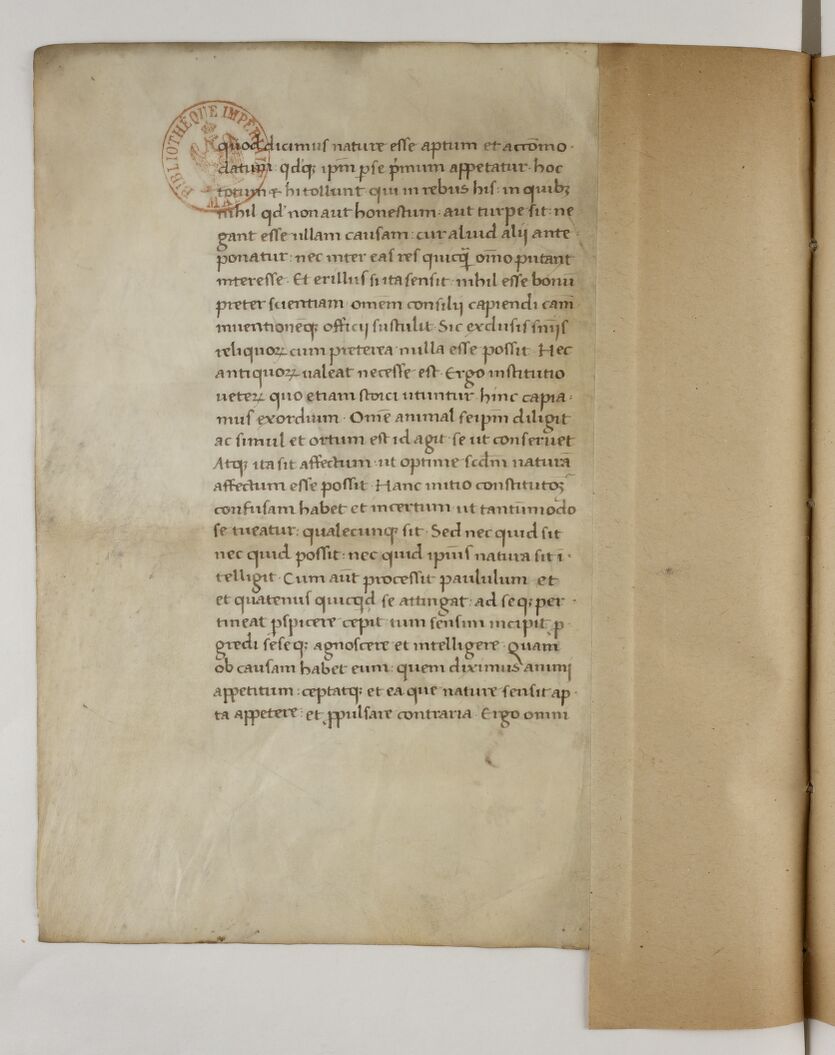 BIBLIOTHÉQUE IMPÉRIALE MAN
quod dicimus nature esse aptum et accōmo·
datum: qd'q; ipm̄ p̱se p̄mum appetatur· hoc
totum & hi tollunt qui in rebus his: in quibꝫ
nihil qd' non aut honestum· aut turpe sit: ne
gant esse ullam causam: cur aliud alii ante·
ponatur: nec inter eas res quicq̄ om̄o putant
interesse· Et erillus si ita sensit· nihil esse bonū
preter scientiam· omēm consilii capiendi cām
inuentionēq; officij sustulit· Sic exclusis snīis
reliquoꝝ cum preterea nulla esse possit· Hec
antiquoꝝ ualeat necesse est· Ergo institutio
ueteꝝ quo etiam stoici utuntur hinc capia·
mus exordium· Omē animal seipm̄ diligit
ac simul et ortum est id agit· se ut conseruet
Atq; ita sit affectum· ut optime scdm̄ naturā
affectum esse possit· Hanc initio constitutoꝫ
confusam habet et incertum· ut tantūmodo
se tueatur: qualecunq; sit· Sed nec quid sit
nec quid possit: nec quid ipīus natura sit ī·
telligit· Cum aūt processit paululum et
et quatenus quicq̄d se attingat· ad seq; per·
tineat p̱spicere cepit· tum sensim incipit ꝓ
gredi seseq; agnoscere et intelligere· Quam
ob causam habet eum: quem diximus animi
appetitum: ceptatq; et ea que nature sensit ap·
ta appetere: et ꝓpulsare contraria· Ergo omni